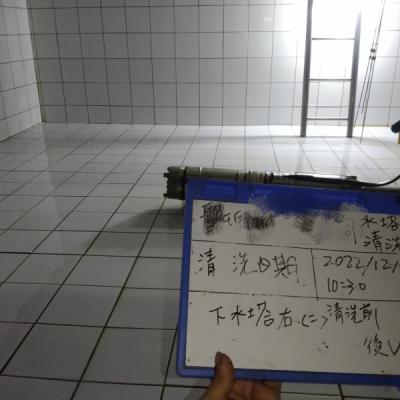 水塔
清洗
清洗日期
2022/12/
10:30
下水塔右.(二)清洗前
後V